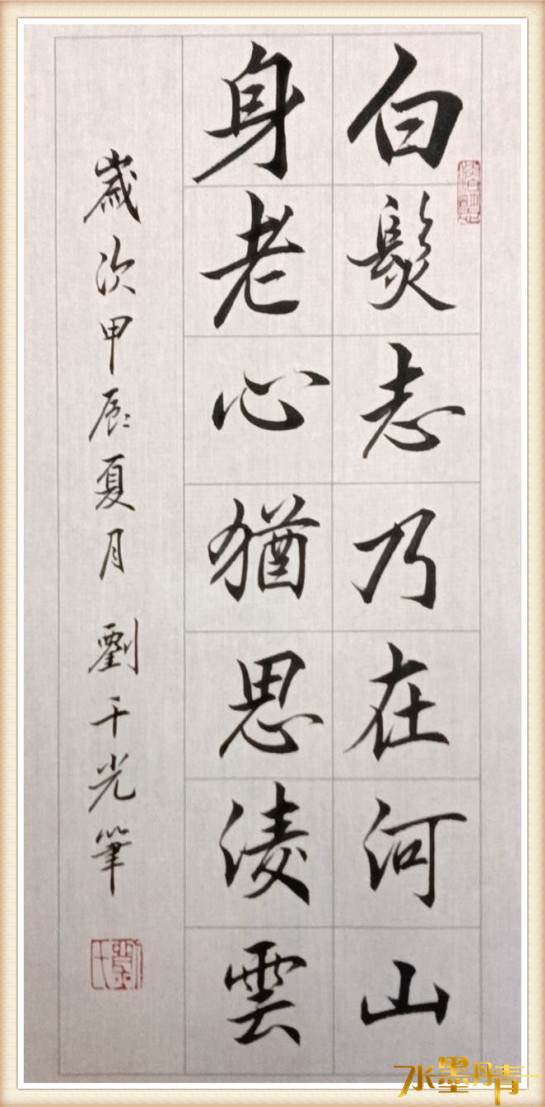 白髮志乃在河山
身老心猶思淩雲
歲次甲辰夏月 劉千光筆
水墨丹青